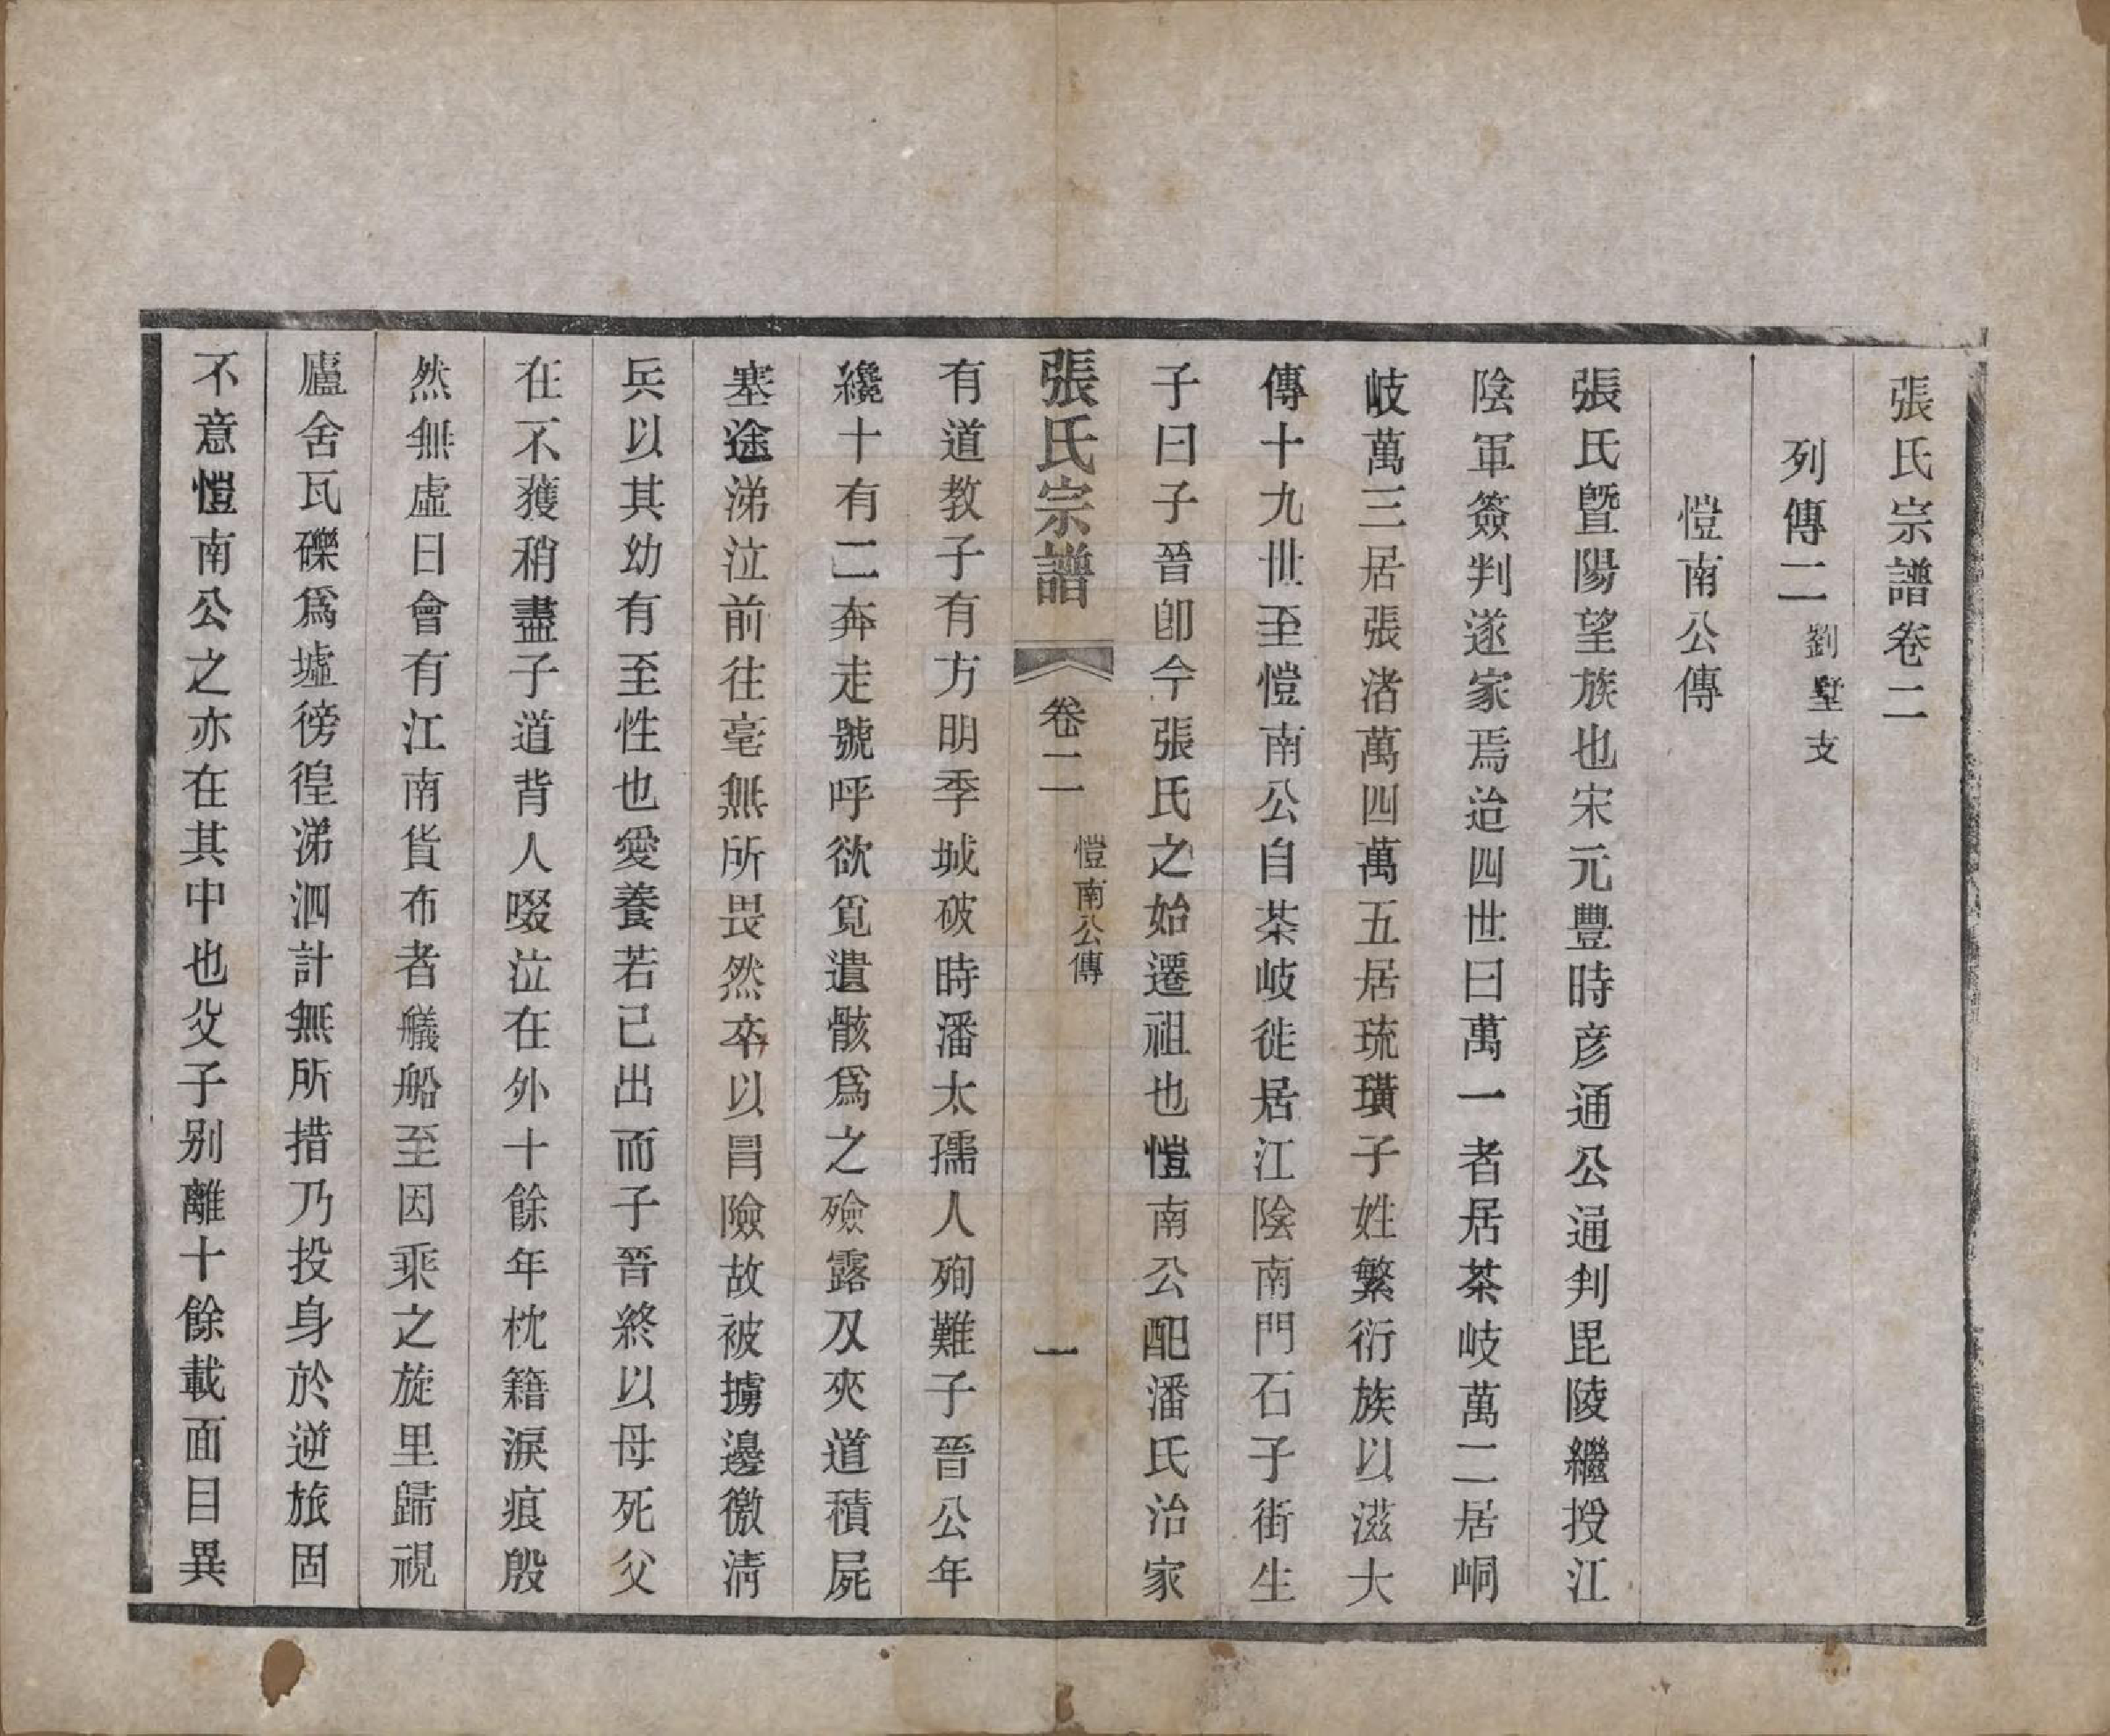 張氏宗譜卷二
列傳二劉墅支
愷南公傳
張氏暨陽望族也宋元豐時彦通公通判毘陵繼授江
陰軍簽判遂家焉迨四世曰萬一者居茶岐萬二居峒
岐萬三居張渚萬四萬五居琉璜子姓繁衍族以滋大
傳十九世至愷南公自茶岐徙居江陰南門石子街生
子曰子晉卽今張氏之始遷祖也愷南公配潘氏治家
張氏宗譜 卷二 愷南公傳 一
有道教子有方明季城破時潘太孺人殉難子晉公年
纔十有二奔走號呼欲覓遺骸爲之殮露及夾道積屍
塞途涕泣前往毫無所畏然卒以冒險故被擄邊徼淸
兵以其幼有至性也愛養若己出而子晉終以母死父
在不獲稍盡子道背人啜泣在外十餘年枕籍淚痕殷
然無虛日會有江南貨布者艤船至因乘之旋里歸視
廬舍瓦礫爲墟徬徨涕泗計無所措乃投身於逆旅固
不意愷南公之亦在其中也父子別離十餘載面目異